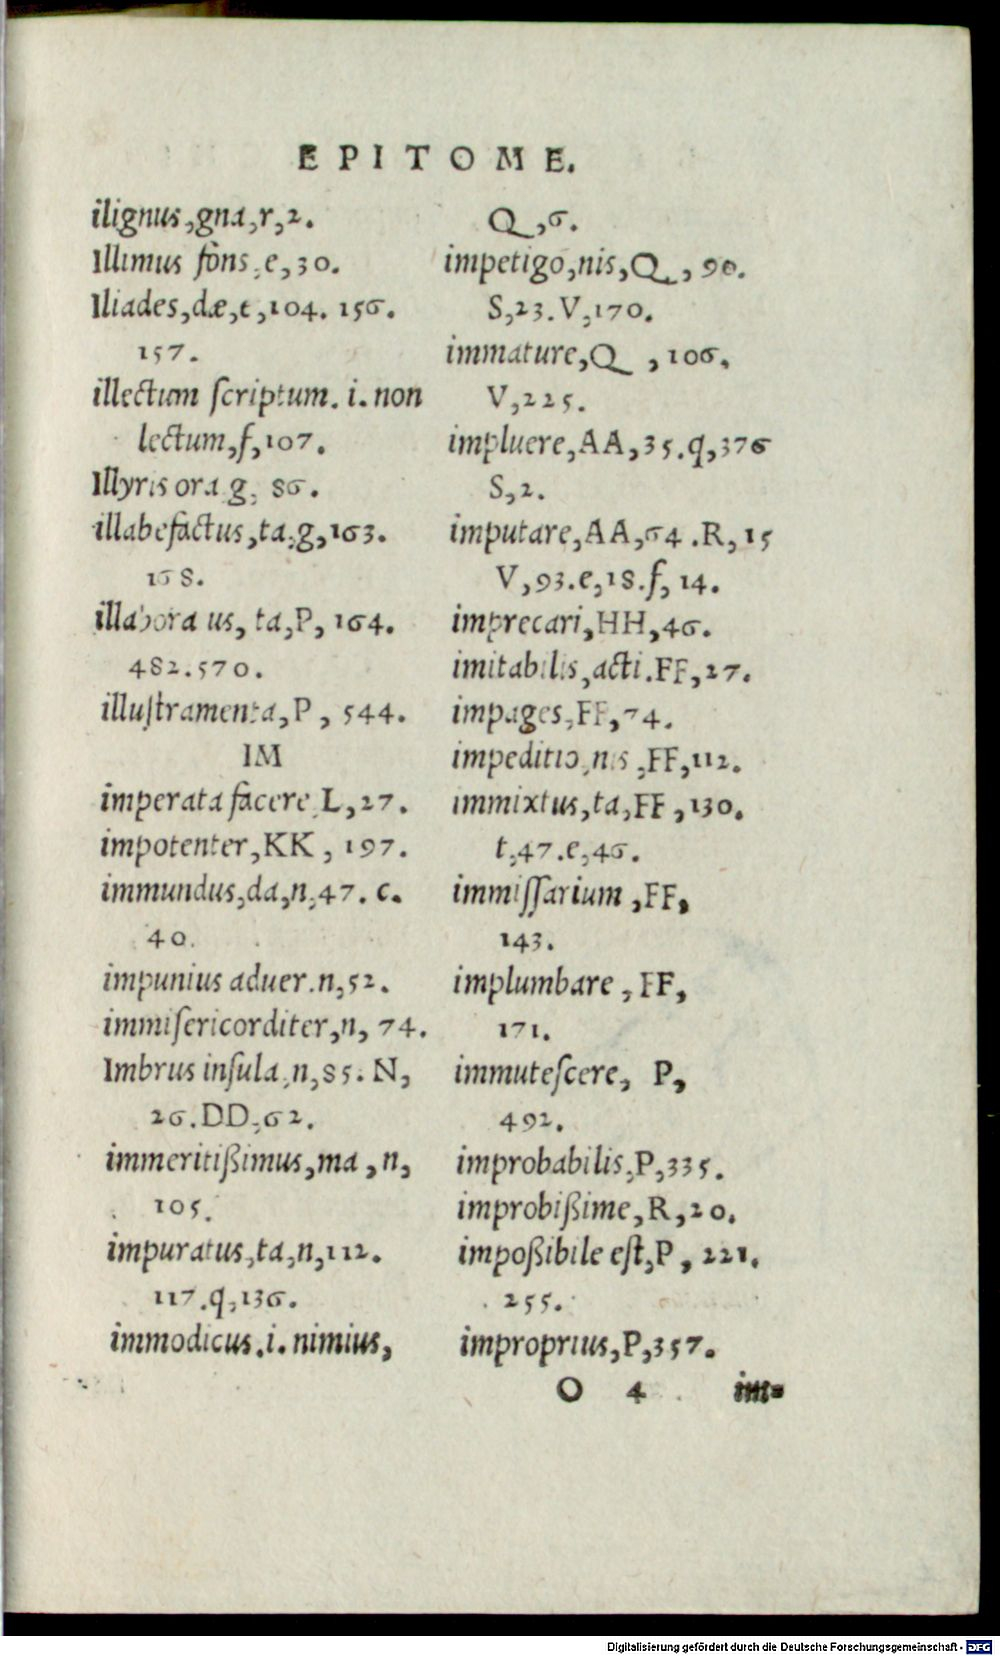 EPITOME.
ilignus,gna,r,2.
Illimus fons,e,30.
Iliades,dæ,t,104. 156.
157.
illectum ſcriptum. i. non
lectum,f,107.
Illyris ora g, 86.
illabefactus,ta,g,163.
168.
illabora us, ta,P, 164.
482.570.
illuſtramenta,P, 544.
IM
imperata facere L,27.
impotenter,KK, 197.
immundus,da,n,47. c.
40.
impunius aduer.n,52.
immiſericorditer,n, 74.
Imbrus inſula,n,85. N,
26.DD,62.
immeritißimus,ma,n,
105.
impuratus,ta,n,112.
117.q,136.
immodicus.i. nimius,
Q,6.
impetigo,nis,Q, 90.
S,23.V,170.
immature,Q, 106,
V,225.
impluere,AA,35.q,376
S,2.
imputare,AA,64.R,15
V,93.e,18.f, 14.
imprecari,HH,46.
imitabilis,acti.FF,27.
impages,FF,74.
impeditio,nis,FF,112.
immixtus,ta,FF,130.
t,47.e,46.
immiſſarium,FF,
143.
implumbare, FF,
171.
immuteſcere, P,
492.
improbabilis,P,335.
improbißime,R,20.
impoßibile eſt,P, 221.
255.
improprius,P,357.
O 4 im=
Digitalisierung gefördert durch die Deutsche Forschungsgemeinschaft - DFG